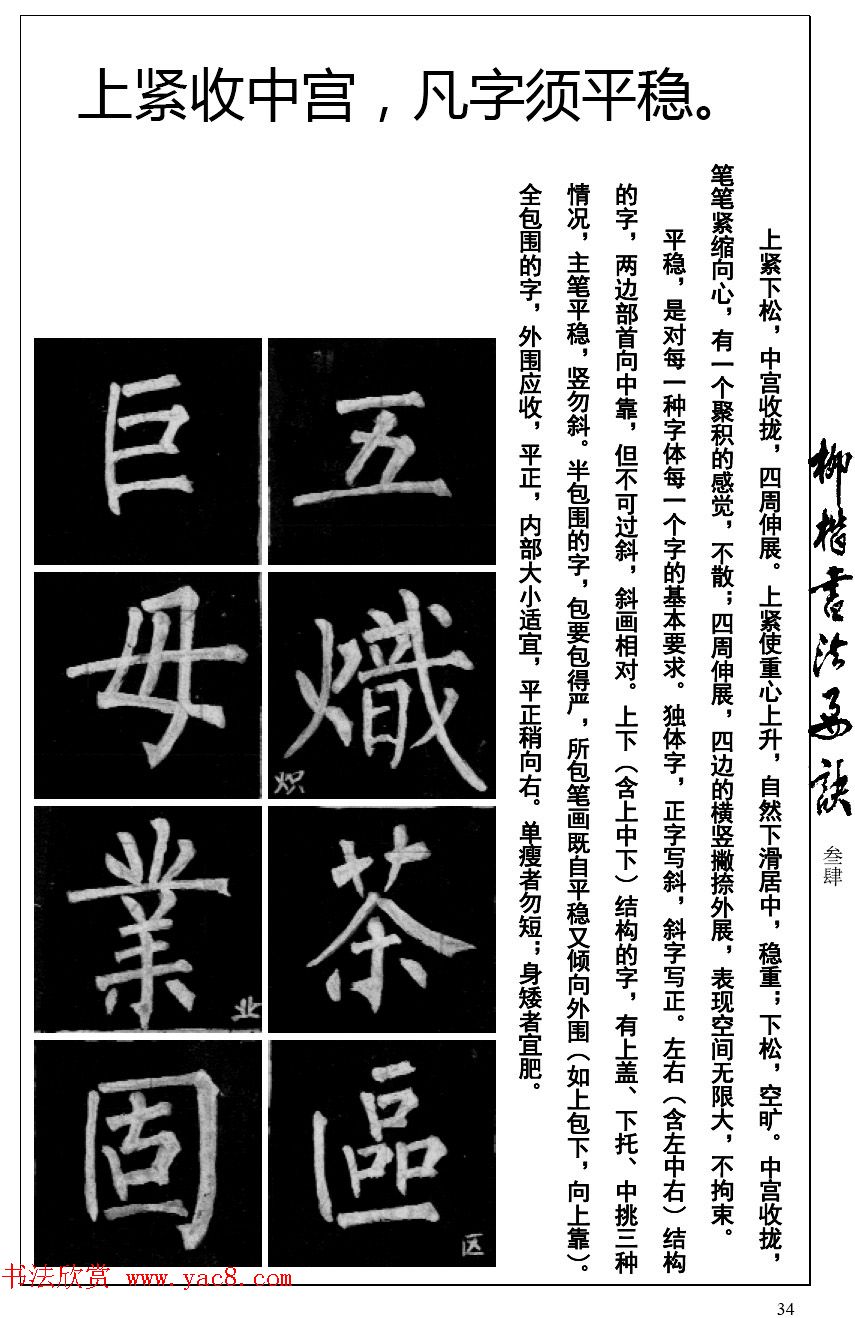 上紧收中宫，凡字须平稳。
上紧下松，中宫收拢，四周伸展。上紧使重心上升，自然下滑居中，稳重；下松，空旷。中宫收拢，
笔笔紧缩向心，有一个聚积的感觉，不散；四周伸展，四边的横竖撇捺外展，表现空间无限大，不拘束。
平稳，是对每一种字体每一个字的基本要求。独体字，正字写斜，斜字写正。左右（含左中右）结构
的字，两边部首向中靠，但不可过斜，斜画相对。上下（含上中下）结构的字，有上盖、下托、中挑三种
情况，主笔平稳，竖勿斜。半包围的字，包要包得严，所包笔画既自平稳又倾向外围（如上包下，向上靠）。
全包围的字，外围应收，平正，内部大小适宜，平正稍向右。单瘦者勿短；身矮者宜肥。
五
熾
炽
茶
區
区
巨
毋
業
业
固
柳楷書法要訣
叁肆
书法欣赏 www.yac8.com
34